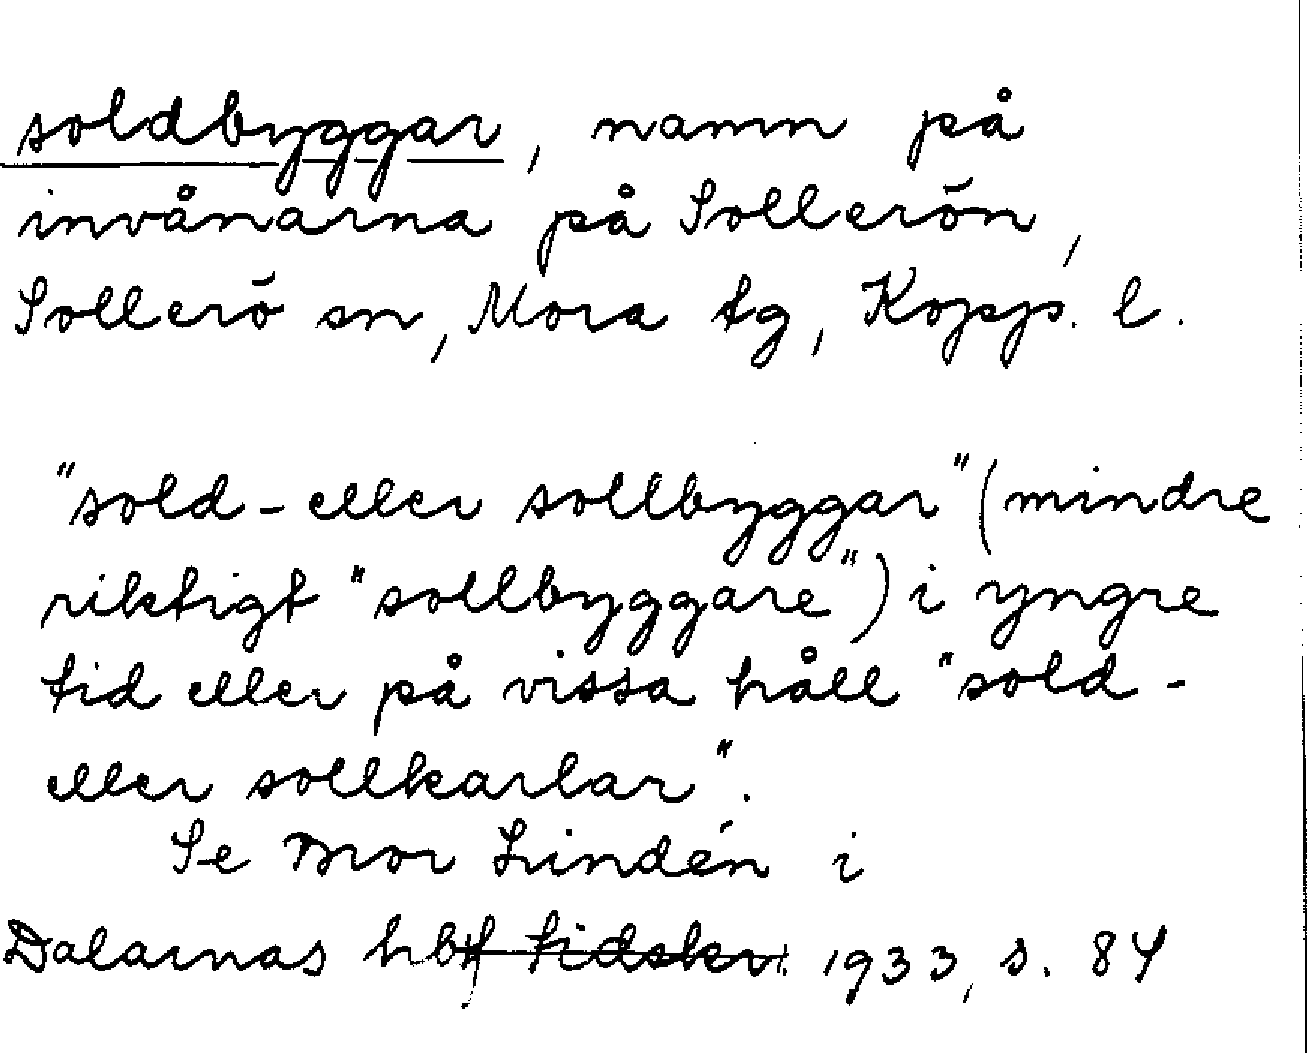 soldbyggar, namn på
invånarna på Sollerön,
Sollerö sn, Mora tg, Kopp. l.
"sold- eller sollbyggar" (mindre
riktigt "sollbyggare") i yngre
tid eller på vissa håll "sold-
eller sollkarlar".
Se Bror Lindén i
Dalarnas hbf tidskr. 1933, s. 84